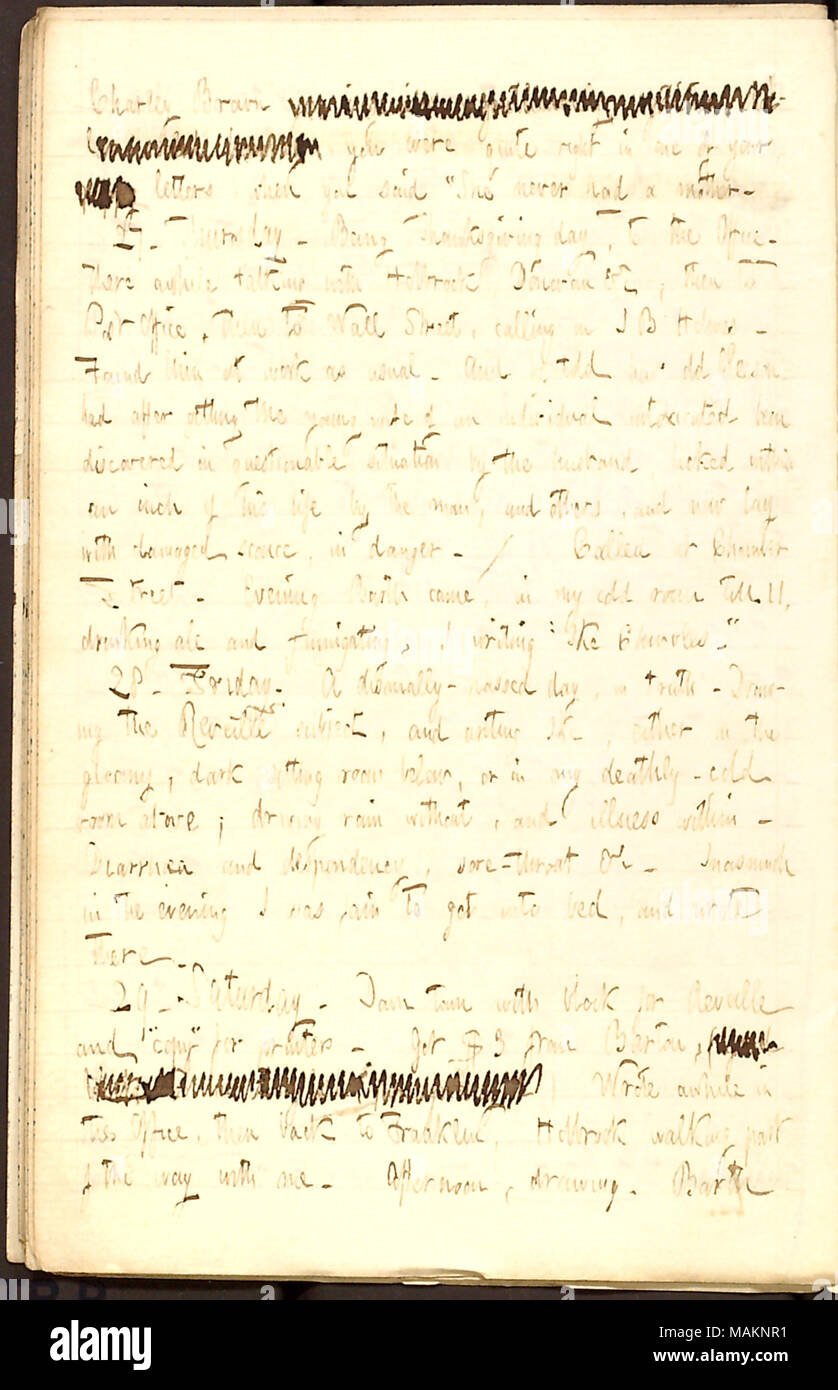 Charley Brown
you were quite right in one of your
letters when you said "She never had a mother-
27. Thursday. Being Thanksgiving day, to the Office.
There awhile talking with Holbrook, &c, then to
Post Office, then to Wall Street, calling on J B Holmes.
Found him at work as usual. And told how old
had after getting the young wife of an individual intoxicated been
discovered in questionable situation by the husband, licked within
an inch of his life by the man, and others, and now lay
with damaged sconce, in danger. / Called at Chamber
Street. Evening Barth came, in my cold room till 11,
drinking ale and fumigating, I writing
28. Friday. A dismally-passed day, in truth. Draw-
ing the Reveille subject, and writing, either in the
gloomy, dark sitting room below, or in my deathly-cold
room above; driving rain without, and illness within.
Diarrhea and despondency, sore-throat &c. Inasmuch
in the evening I was fain to get into bed, and wrote
there.
29. Saturday. Down town with block for Reveille
and "copy" for printers. Got $3 from Barton,
Wrote awhile in
this Office, then back to Franklin, Holbrook walking part
of the way with me. Afternoon, drawing. Barth
alamy
Image ID: MAKNR1
www.alamy.com